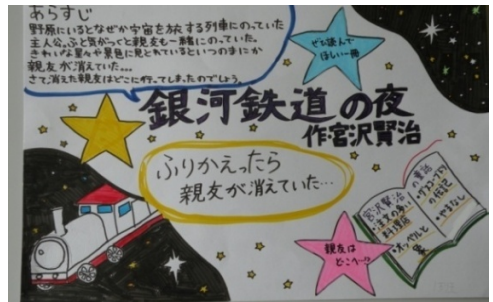 あらすじ
野原にいるとなぜか宇宙を旅する列車にのっていた
主人公。ふと気がつくと親友も一緒にのっていた。
きれいな星々や景色に見とれているといつのまにか
親友が消えていた…
さて、消えた親友はどこに行ってしまったのでしょう。
ぜひ読んで
ほしい一冊
銀河鉄道の夜
作宮沢賢治
ふりかえったら
親友が消えていた…
親友は
どこへ…!?
宮沢賢治
の童話
・注文の多い
料理店
・オツベルと
象
・グスコーブドリ
の伝記
・やまなし